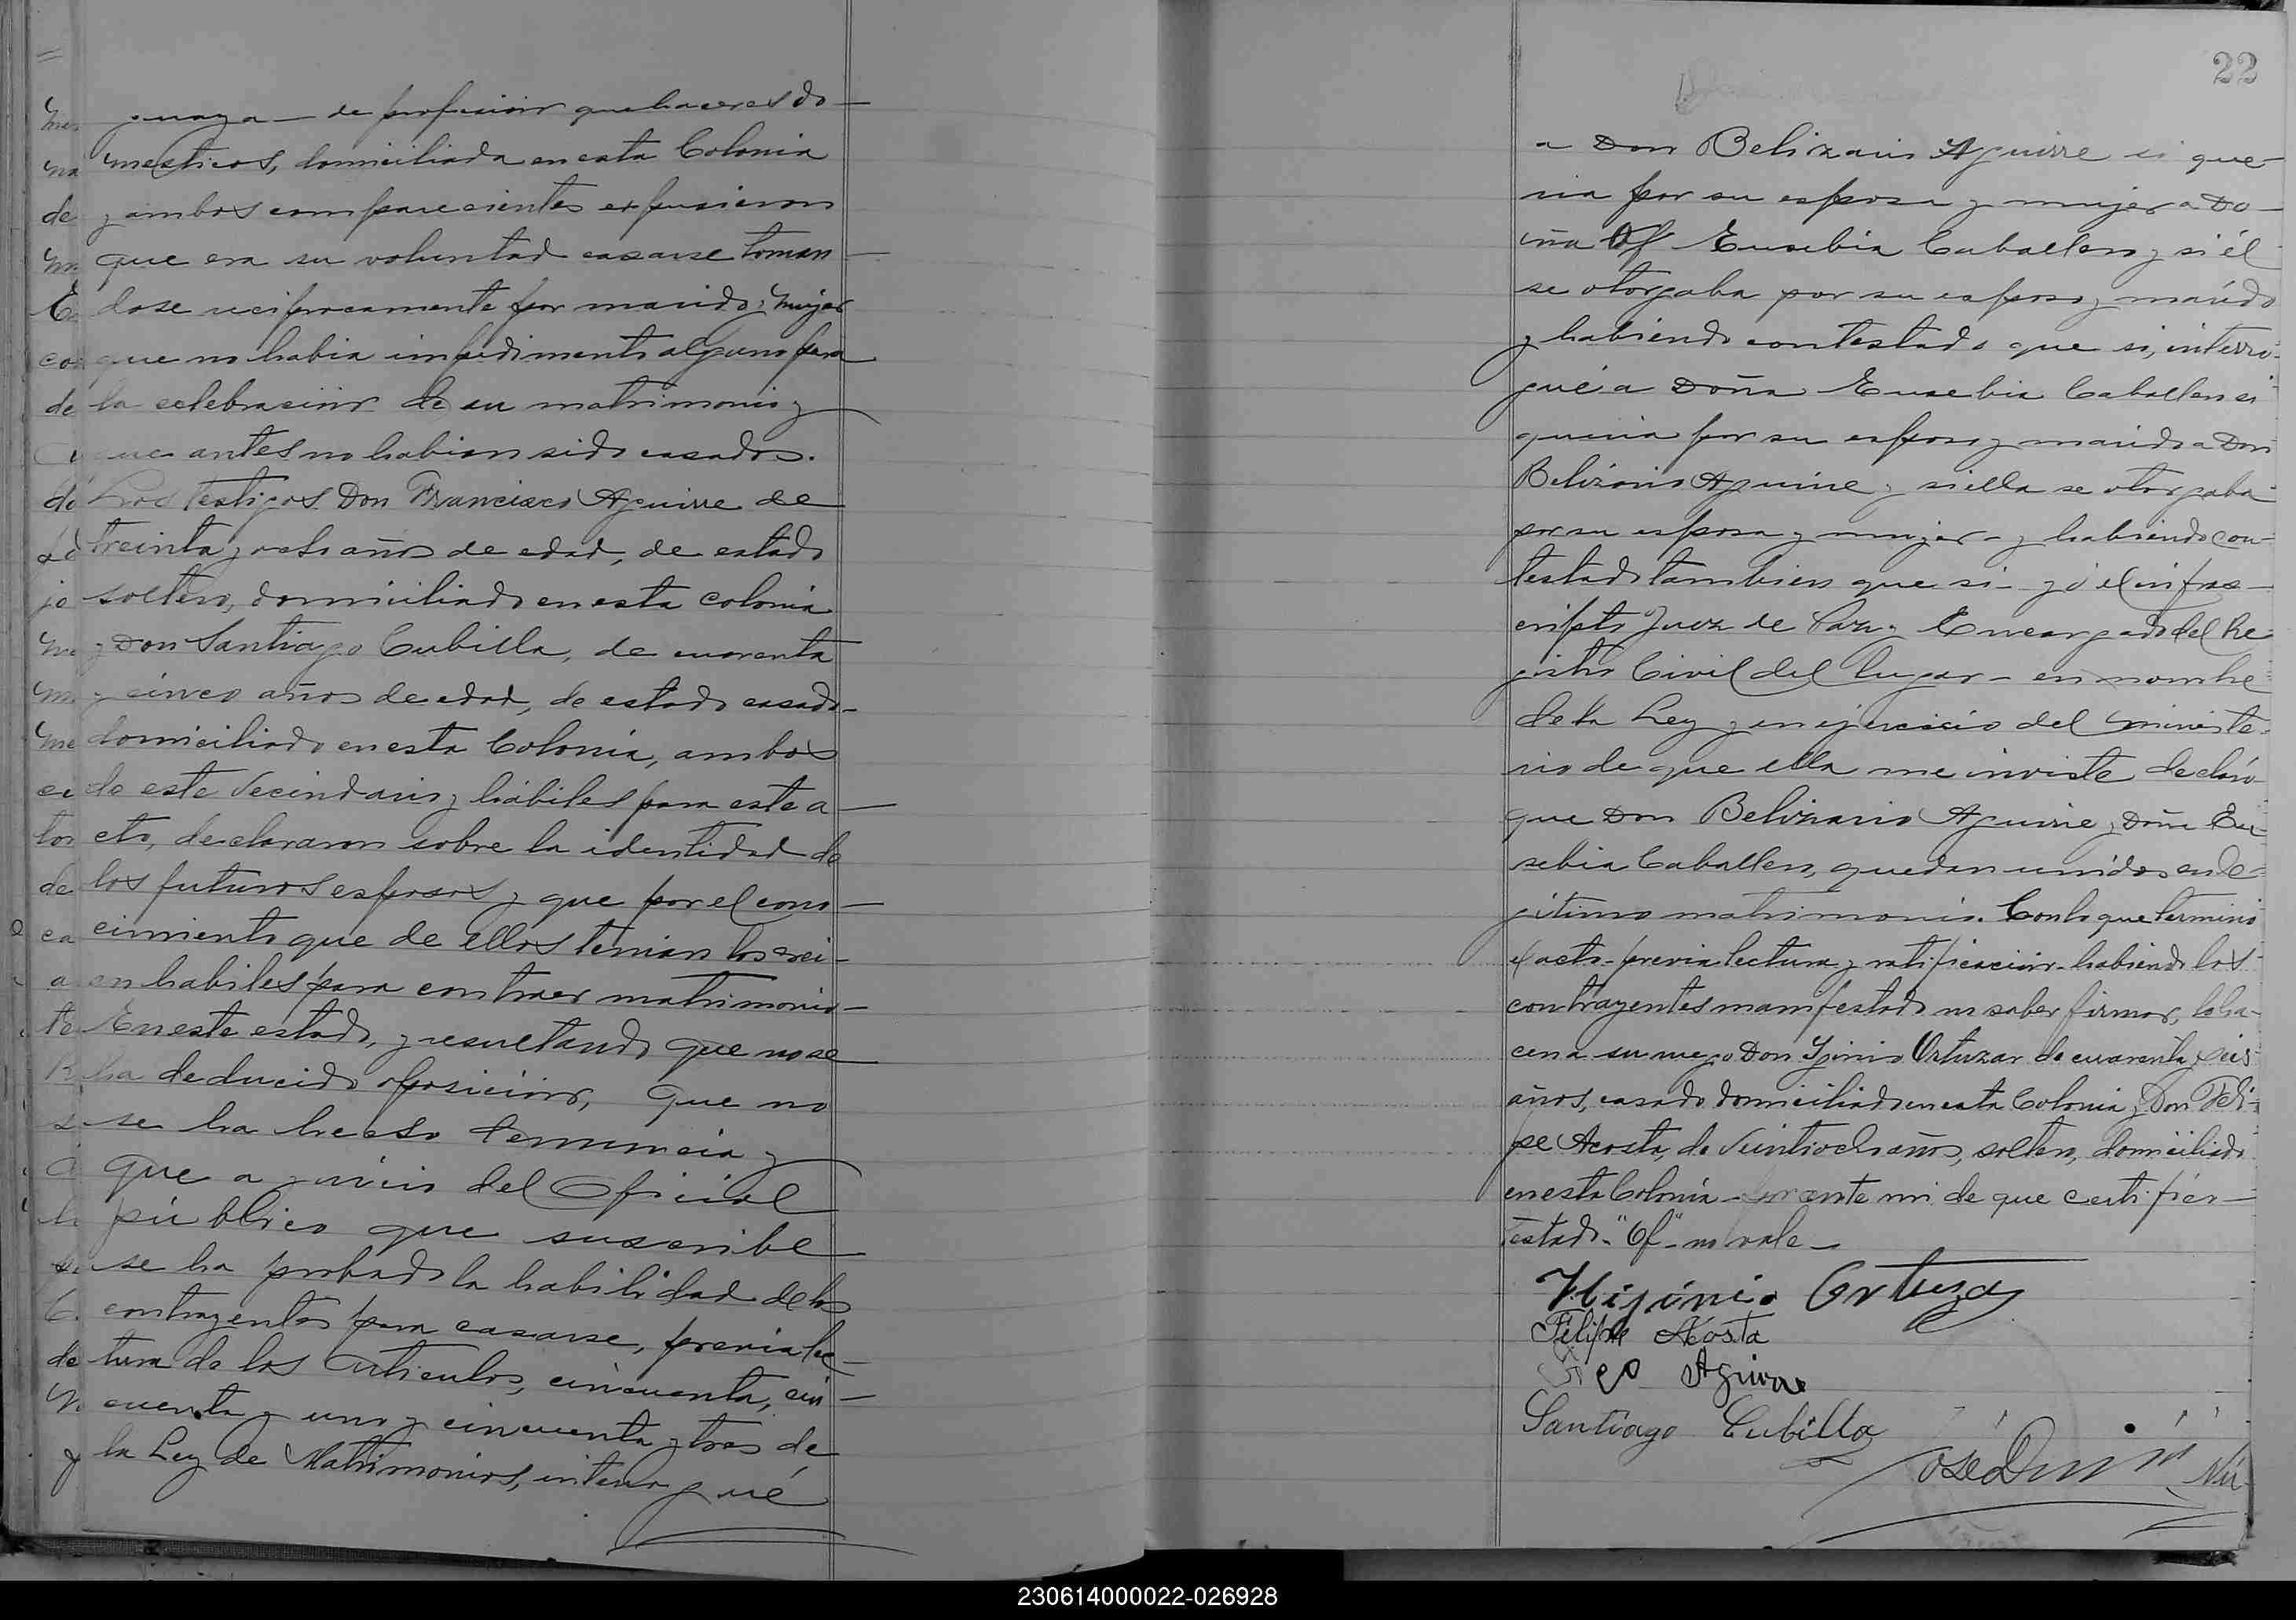 de profesion quehaceres do-
mesticos, domiciliada en esta Colonia
y ambos comparecientes expusieron
que era su voluntad casarse toman-
dose reciprocamente por marido y mujer
que no habia impedimento alguno para
la celebracion de su matrimonio y
que antes no habian sido casados.
Los testigos Don Francisco Aguirre de
treinta y ocho años de edad, de estado
soltero, domiciliado en esta colonia
y Don Santiago Cubilla, de cuarenta
y cinco años de edad, de estado casado-
domiciliado en esta Colonia, ambos
de este Vecindario y hábiles para este a-
cto, declararon sobre la identidad de
los futuros esposos y que por el cono-
cimiento que de ellos tenian los crei-
an habiles para contraer matrimonio-
En este estado, y resultando que no se
ha deducido oposicion, que no
se ha hecho denuncia y
que a juicio del Oficial
público que suscribe
se ha probado la habilidad de los
contrayentes para casarse, previa lec-
tura de los Articulos, cincuenta, cin-
cuenta y uno y cincuenta y tres de
la Ley de Matrimonios, interrogué
22
a Don Belizario Aguirre si que-
ria por su esposa y mujer a Do-
ña Of Eusebia Caballero y si él
se otorgaba por su esposo y marido
y habiendo contestado que si, interro-
gué a Doña Eusebia Caballero si
queria por su esposo y marido a Don
Belizario Aguirre y si ella se otorgaba
por su esposa y mujer- y habiendo con-
testado tambien que si- yó el infras-
cripto Juez de Paz y Encargado del Re-
gistro Civil del Lugar- en nombre
de la Ley y en ejercicio del ministe-
rio de que ella me inviste declaró
que Don Belizario Aguirre y Doña Eu-
sebia Caballero, quedan unidos en le-
gitimo matrimonio. Con lo que terminó
el acto- previa lectura y ratificacion- habiendo los
contrayentes manifestado no saber firmar, lo ha-
cen a su ruego Don Iginio Ortuzar de cuarenta y seis
años, casado domiciliado en esta Colonia y Don Feli-
pe Acosta, de Veintiocho años, soltero, domiciliado
en esta Colonia- por ante mi de que certifico-
testado- "Of"- no vale-
Higinio Ortuzar
Felipe Acosta
Fco Aguirre
Santiago Cubilla
José
230614000022-026928